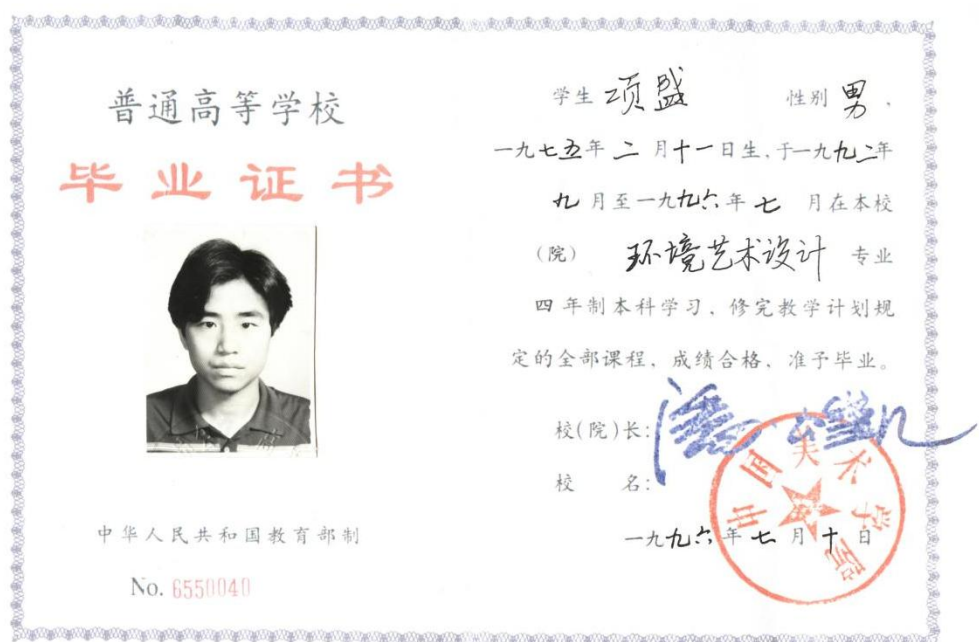 普通高等学校
毕业证书
中华人民共和国教育部制
No. 6550040
学生 项盛 性别 男、
一九七五年二月十一日生,于一九九二年
九月至一九九六年七月在本校
(院) 环境艺术设计 专业
四年制本科学习、修完教学计划规
定的全部课程、成绩合格、准予毕业。
校(院)长:
校 名:
中国美术学院
一九九六年七月十日